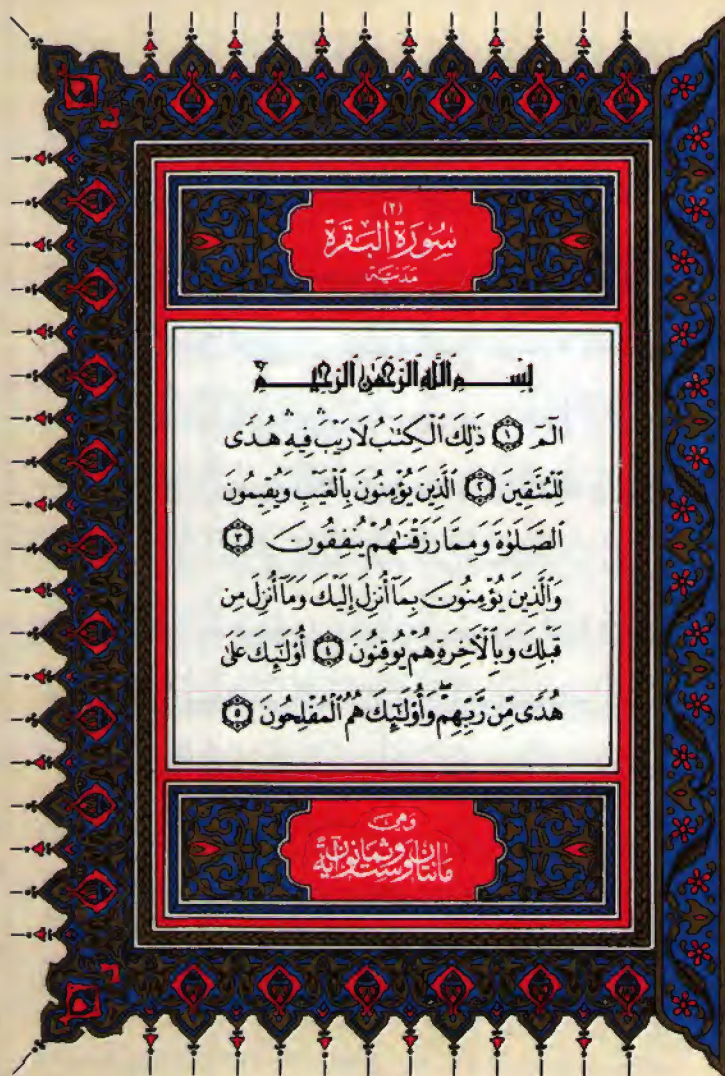 (٢)
سُورَةُ البَقَرَةِ
مَدَنِيَّة
بِسْمِ ٱللَّهِ ٱلرَّحْمَٰنِ ٱلرَّحِيمِ
الٓمٓ ١ ذَٰلِكَ ٱلْكِتَٰبُ لَا رَيْبَ ۛ فِيهِ ۛ هُدًى
لِّلْمُتَّقِينَ ٢ ٱلَّذِينَ يُؤْمِنُونَ بِٱلْغَيْبِ وَيُقِيمُونَ
ٱلصَّلَوٰةَ وَمِمَّا رَزَقْنَٰهُمْ يُنفِقُونَ ٣
وَٱلَّذِينَ يُؤْمِنُونَ بِمَآ أُنزِلَ إِلَيْكَ وَمَآ أُنزِلَ مِن
قَبْلِكَ وَبِٱلْءَاخِرَةِ هُمْ يُوقِنُونَ ٤ أُو۟لَٰٓئِكَ عَلَىٰ
هُدًى مِّن رَّبِّهِمْ ۖ وَأُو۟لَٰٓئِكَ هُمُ ٱلْمُفْلِحُونَ ٥
وَهِيَ
مائتان وست وثمانون آية